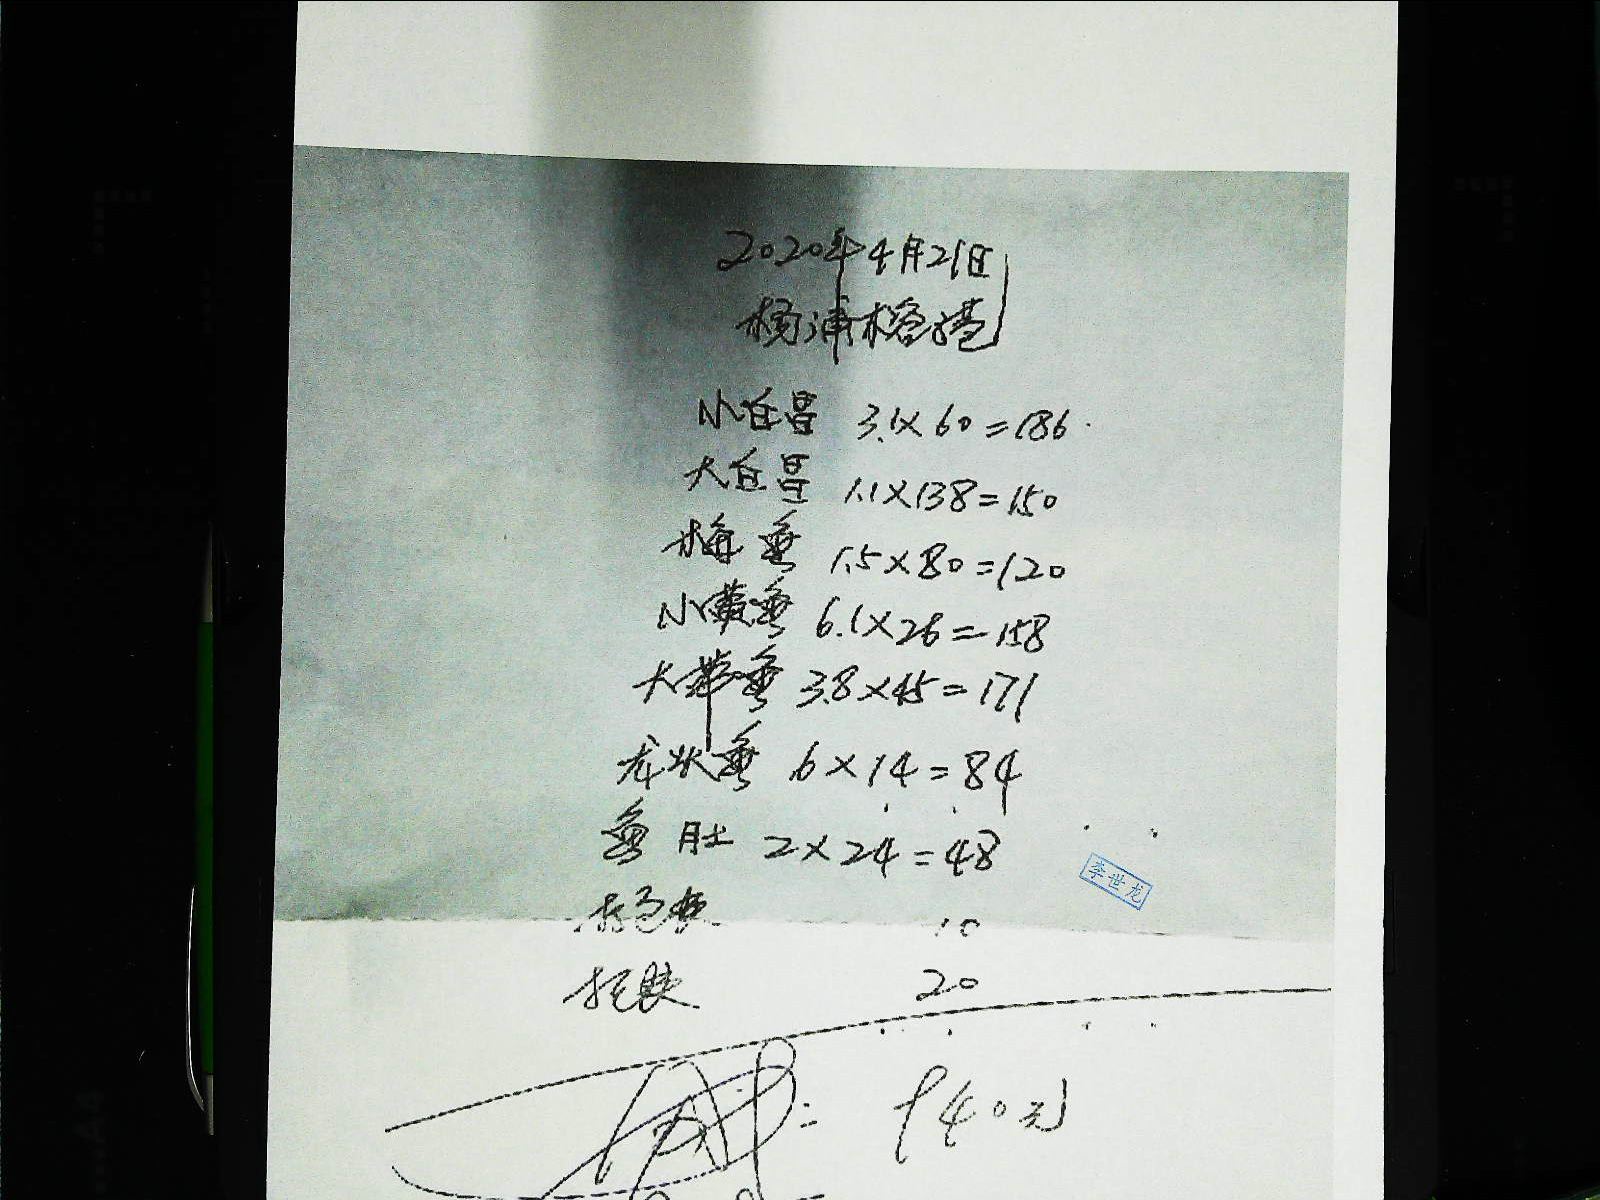 2020年4月21日
杨浦榕港
小白昌 3.1×60=186
大白昌 1.1×138=150
梅鱼 1.5×80=120
小黄鱼 6.1×26=158
大带鱼 3.8×45=171
龙状鱼 6×14=84
鱼肚 2×24=48
李世龙
10
20
= 940元
A4